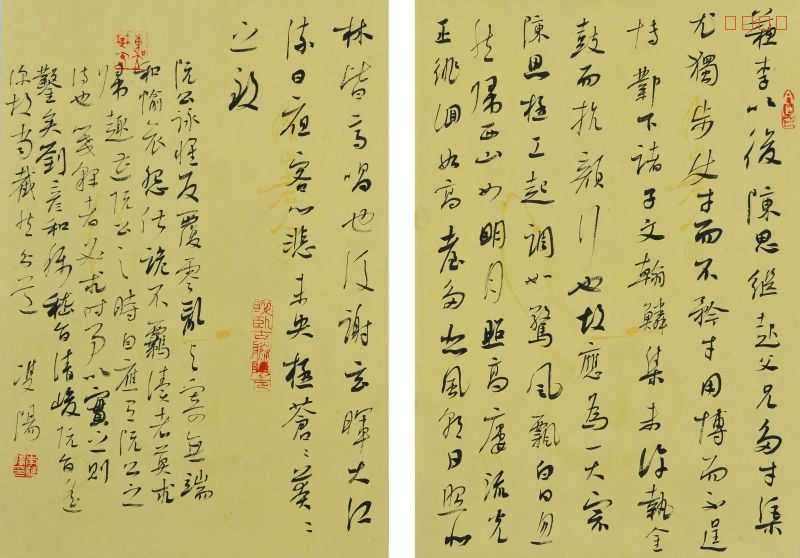 蘇李以後陳思継起父兄多才渠
尤獨步使才而不矜才用博而不逞
博鄴下諸子文翰鱗集未許執金
鼓而抗顏行也故應為一大宗
陳思極工起調如驚風飄白日忽
然歸西山如明月照高樓流光
正徘徊如高臺多悲風朝日照北
林皆高唱也後謝玄暉大江
流日夜客心悲未央極蒼〻莽〻
之致
阮公詠懷反覆零亂興寄無端
和愉哀怨俶詭不羈讀者莫求
歸趣遭阮公之時自應有阮公之
詩也箋釋者必求時事以實之則
鑿矣劉彥和稱嵇旨清峻阮旨遙
深故當截然分道